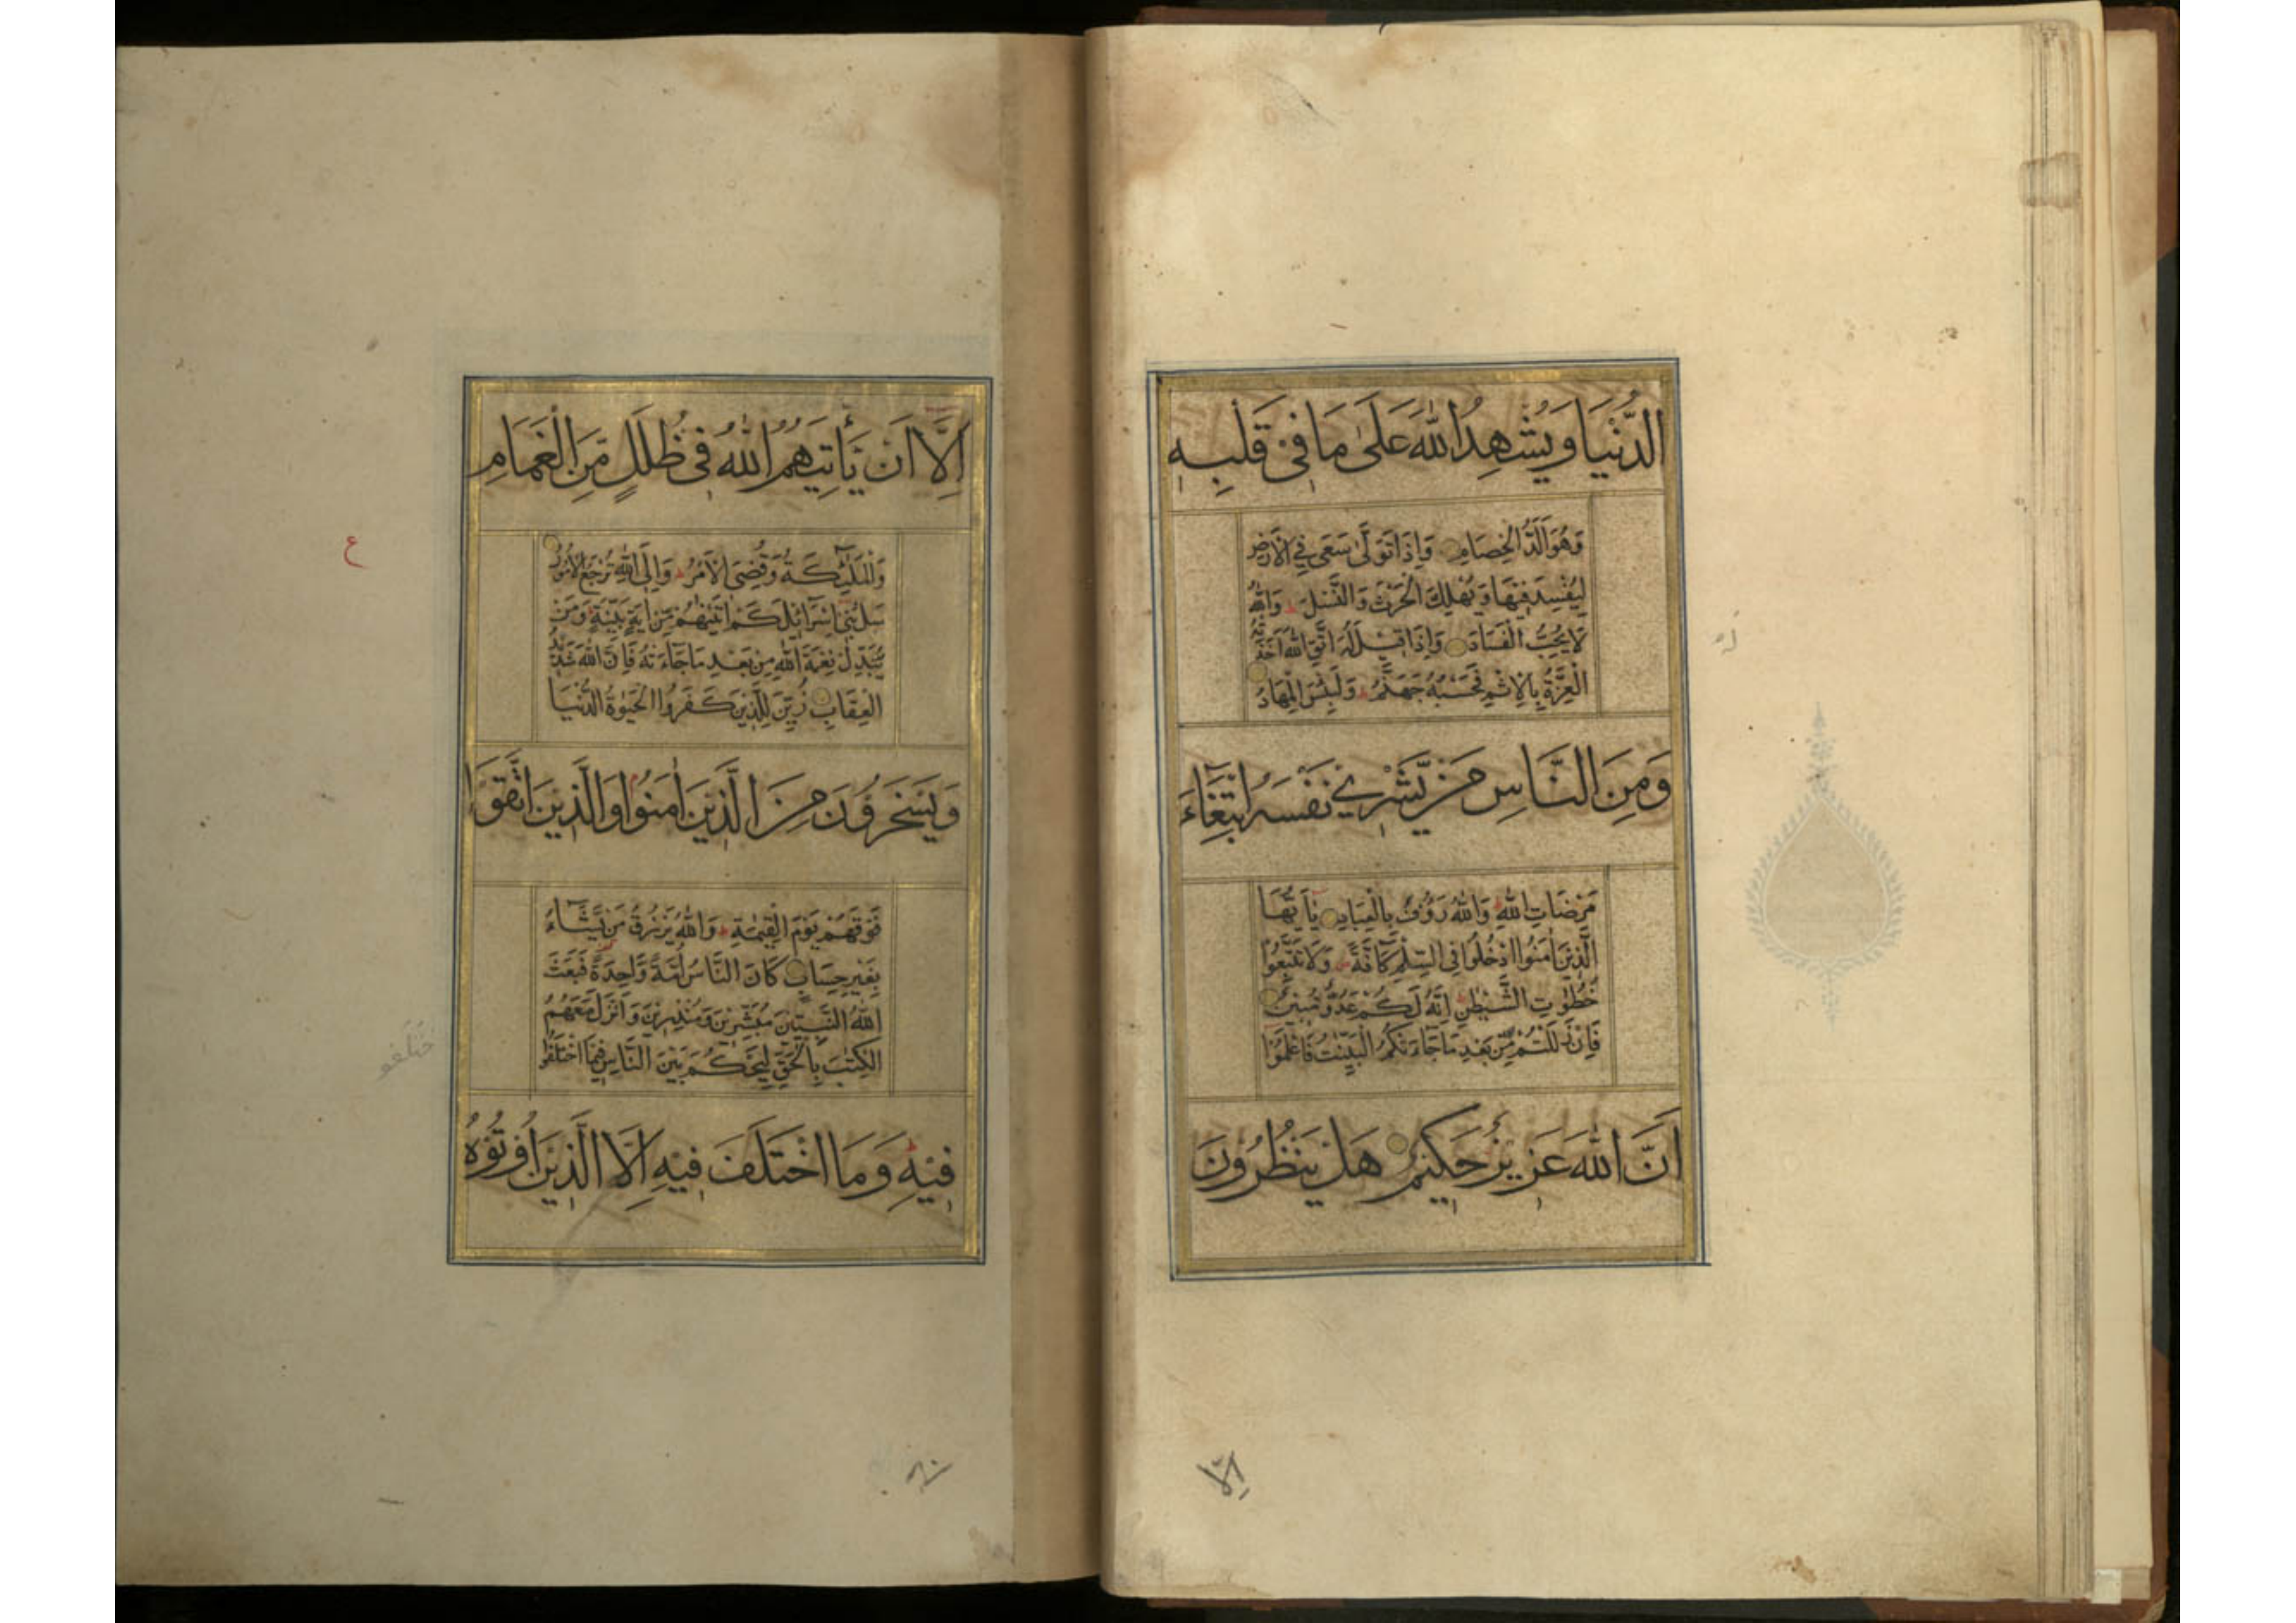 الدُّنْيَا وَيُشْهِدُ اللّٰهَ عَلَىٰ مَا فِي قَلْبِهِ
وَهُوَ اَلَدُّ الْخِصَامِ وَاِذَا تَوَلّٰى سَعٰى فِي الْاَرْضِ
لِيُفْسِدَ فِيْهَا وَيُهْلِكَ الْحَرْثَ وَالنَّسْلَ وَاللّٰهُ
لَا يُحِبُّ الْفَسَادَ وَاِذَا قِيْلَ لَهُ اتَّقِ اللّٰهَ اَخَذَتْهُ
الْعِزَّةُ بِالْاِثْمِ فَحَسْبُهُ جَهَنَّمُ وَلَبِئْسَ الْمِهَادُ
وَمِنَ النَّاسِ مَنْ يَّشْرِيْ نَفْسَهُ ابْتِغَآءَ
مَرْضَاتِ اللّٰهِ وَاللّٰهُ رَؤُفٌ بِالْعِبَادِ يٰٓاَيُّهَا
الَّذِيْنَ اٰمَنُوا ادْخُلُوْا فِي السِّلْمِ كَآفَّةً وَلَا تَتَّبِعُوْا
خُطُوٰتِ الشَّيْطٰنِ اِنَّهُ لَكُمْ عَدُوٌّ مُّبِيْنٌ
فَاِنْ زَلَلْتُمْ مِّنْ بَعْدِ مَا جَآءَتْكُمُ الْبَيِّنٰتُ فَاعْلَمُوْا
اَنَّ اللّٰهَ عَزِيْزٌ حَكِيْمٌ هَلْ يَنْظُرُوْنَ
اِلَّا
اِلَّا اَنْ يَّأْتِيَهُمُ اللّٰهُ فِيْ ظُلَلٍ مِّنَ الْغَمَامِ
وَالْمَلٰٓئِكَةُ وَقُضِيَ الْاَمْرُ وَاِلَى اللّٰهِ تُرْجَعُ الْاُمُوْرُ
سَلْ بَنِيْٓ اِسْرَآئِيْلَ كَمْ اٰتَيْنٰهُمْ مِّنْ اٰيَةٍ بَيِّنَةٍ وَمَنْ
يُّبَدِّلْ نِعْمَةَ اللّٰهِ مِنْ بَعْدِ مَا جَآءَتْهُ فَاِنَّ اللّٰهَ شَدِيْدُ
الْعِقَابِ زُيِّنَ لِلَّذِيْنَ كَفَرُوا الْحَيٰوةُ الدُّنْيَا
وَيَسْخَرُوْنَ مِنَ الَّذِيْنَ اٰمَنُوْا وَالَّذِيْنَ اتَّقَوْا
فَوْقَهُمْ يَوْمَ الْقِيٰمَةِ وَاللّٰهُ يَرْزُقُ مَنْ يَّشَآءُ
بِغَيْرِ حِسَابٍ كَانَ النَّاسُ اُمَّةً وَّاحِدَةً فَبَعَثَ
اللّٰهُ النَّبِيّٖنَ مُبَشِّرِيْنَ وَمُنْذِرِيْنَ وَاَنْزَلَ مَعَهُمُ
الْكِتٰبَ بِالْحَقِّ لِيَحْكُمَ بَيْنَ النَّاسِ فِيْمَا اخْتَلَفُوْا
فِيْهِ وَمَا اخْتَلَفَ فِيْهِ اِلَّا الَّذِيْنَ اُوْتُوْهُ
ع